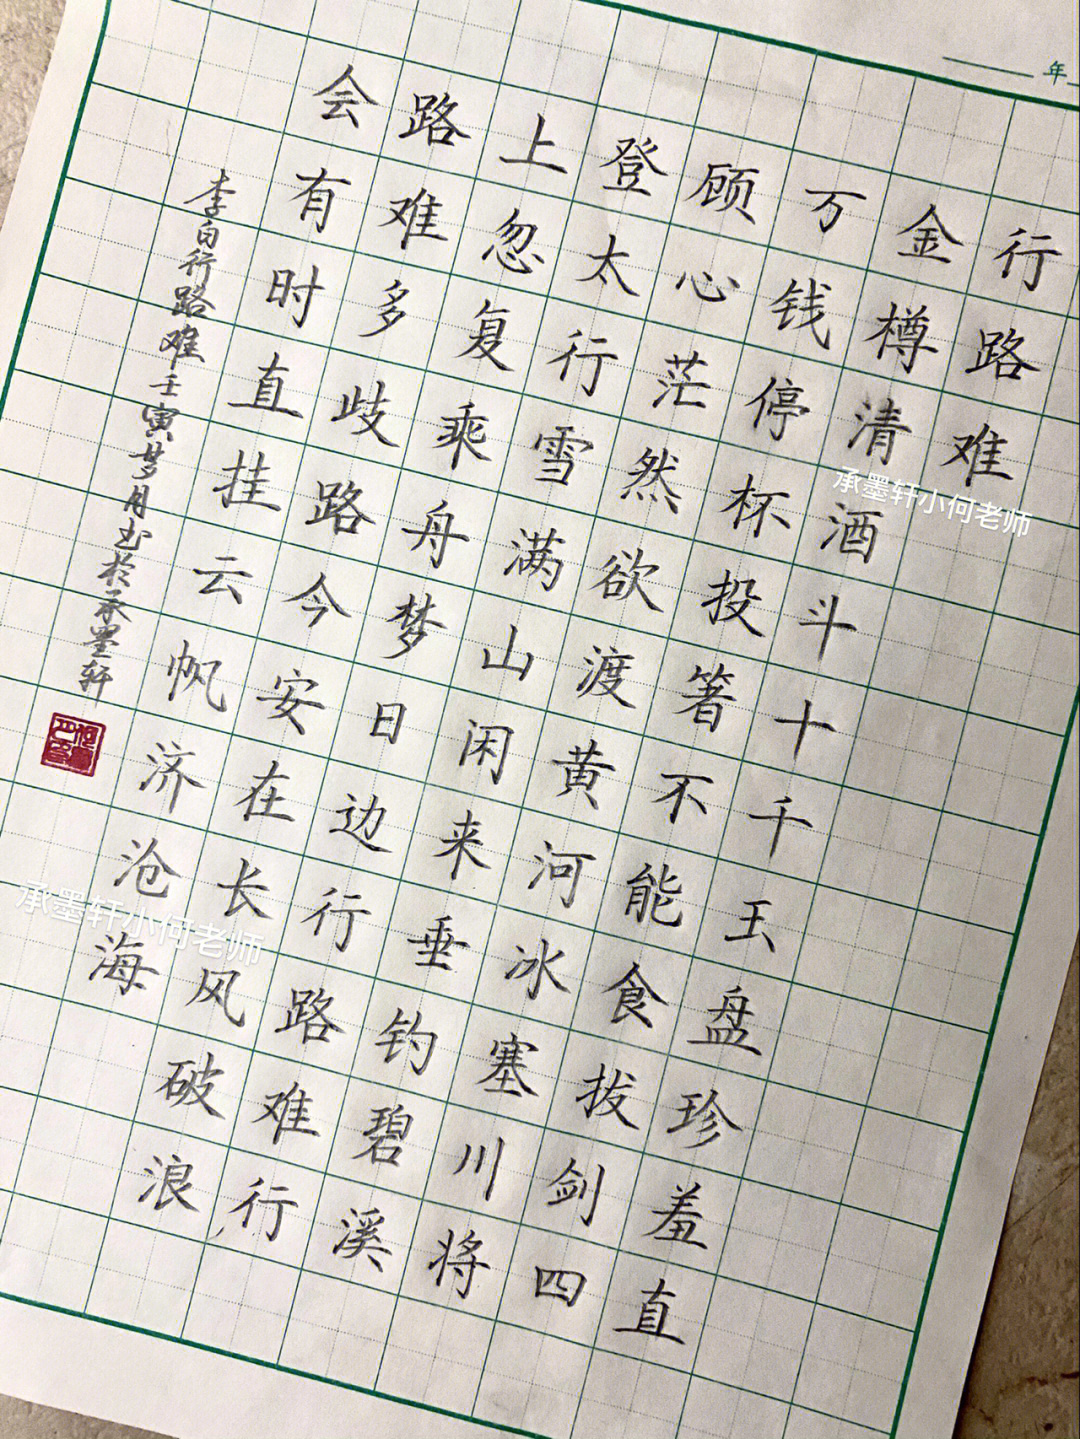 年
行路难
金樽清酒斗十千玉盘珍羞直
万钱停杯投箸不能食拔剑四
顾心茫然欲渡黄河冰塞川将
登太行雪满山闲来垂钓碧溪
上忽复乘舟梦日边行路难行
路难多歧路今安在长风破浪
会有时直挂云帆济沧海
李白行路难壬寅月书於承墨轩
承墨轩小何老师
承墨轩小何老师